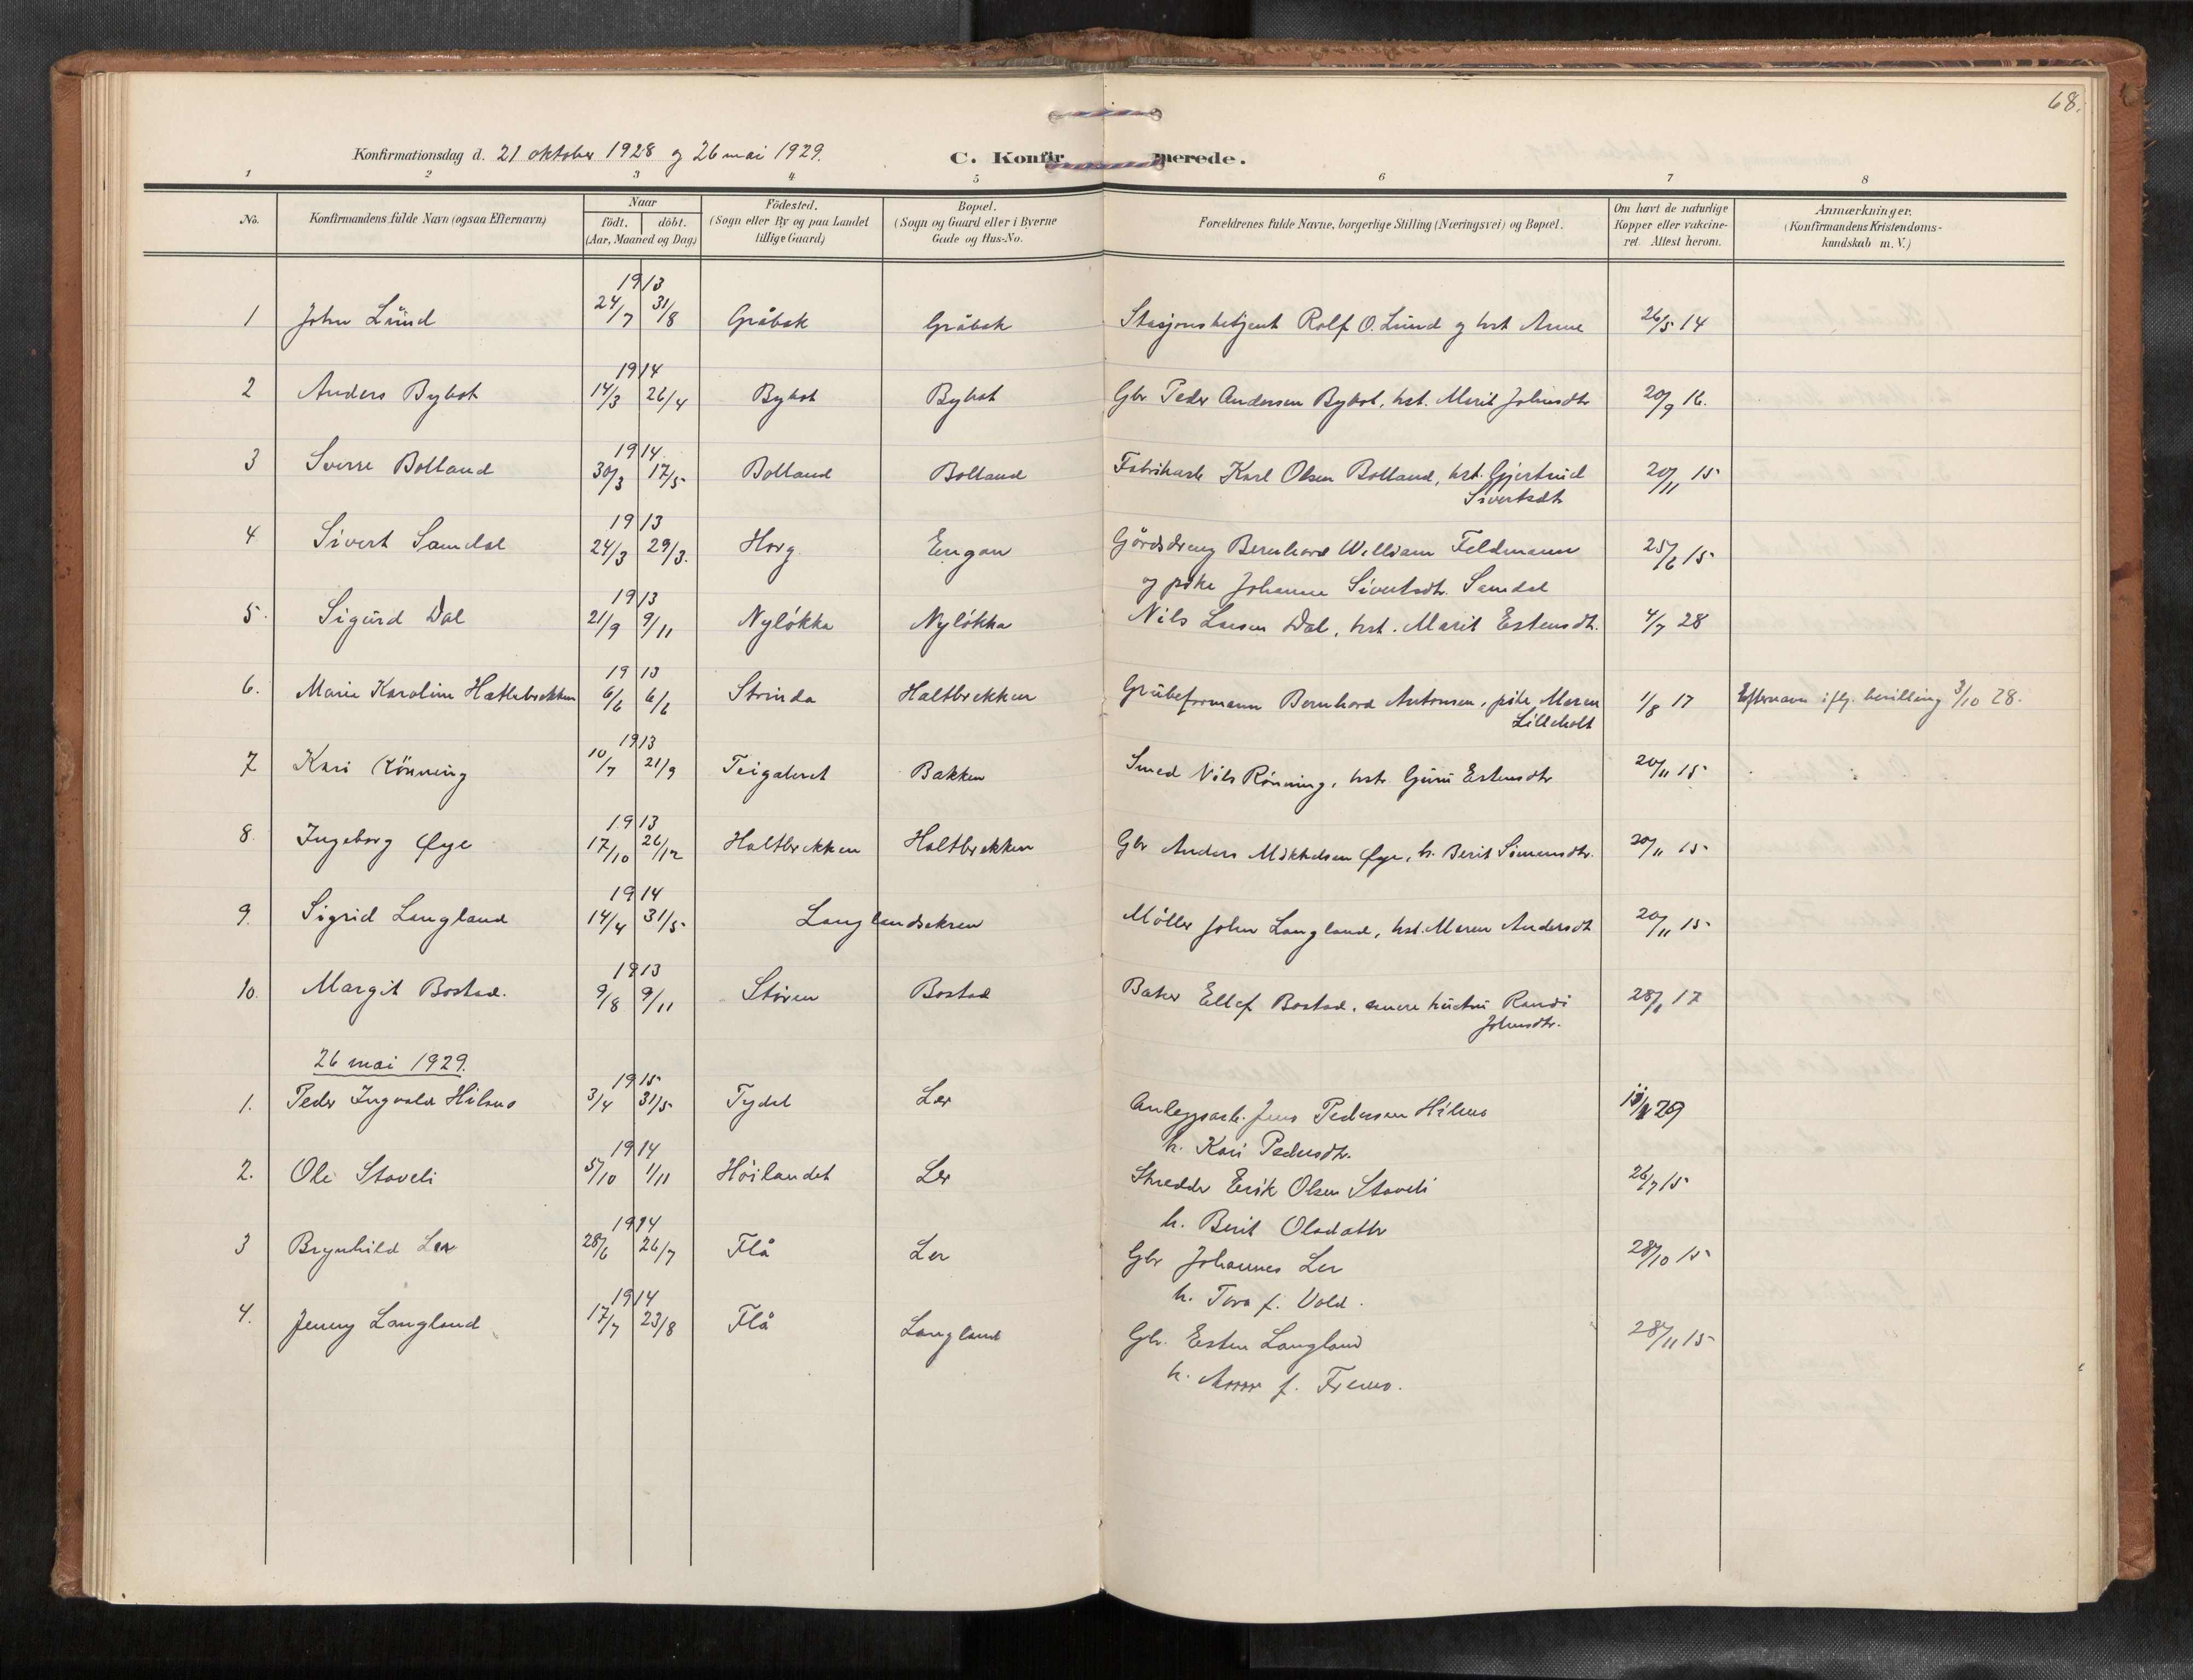 68.
Konfirmationsdag d. 21 oktober 1928 og 26 mai 1929.
C. Konfirmerede.
1 2 3 4 5 6 7 8
No. Konfirmandens fulde Navn (ogsaa Efternavn) Naar födt. döbt. (Aar, Maaned og Dag) Födested. (Sogn eller By og paa Landet tillige Gaard) Bopæl. (Sogn og Gaard eller i Byerne Gade og Hus-No. Forældrenes fulde Navne, borgerlige Stilling (Næringsvei) og Bopæl. Om havt de naturlige Kopper eller vakcineret. Attest herom. Anmærkninger. (Konfirmandens Kristendomskundskab m. V.)
1913
1 John Lund 24/7 31/8 Gråbak Gråbak Stasjonsbetjent Rolf O. Lund og hst Anne 26/5 14
1914
2 Anders Bybot 14/3 26/4 Bybot Bybot Gbr Peder Andersen Bybot, hst. Marit Johnsdtr 20/9 16.
1914.
3 Sverre Bolland 30/3 17/5 Bolland Bolland Fabrikarb Karl Olsen Bolland, hst. Gjertrud 20/11 15
Sivertsdtr
1913
4 Sivert Samdal 24/3 29/3. Horg. Engan Gårdsdreng Bernhard William Feldmann 25/6 15
og pike Johanna Sivertsdtr. Samdal
1913
5. Sigurd Dal 21/9 9/11 Nyløkka Nyløkka Nils Larsen Dal, hst. Marit Estensdtr. 4/7 28
1913
6. Marie Karoline Haltbrekken 6/6 6/6 Strinda Haltbrekken Grubeformann Bernhard Antonsen, pike Maren 1/8 17 Efternavn iflg. bevilling 3/10 28.
Lilleholt
1913
7 Kari Rönning 10/7 21/9 Teigabret Bakken Smed Nils Rönning, hstr Guru Estensdtr 20/11 15
1913
8. Ingeborg Øye 17/10 26/12 Haltbrekken Haltbrekken Gbr Anders Mikkelsen Øye, h. Berit Simensdtr. 20/11 15
1914
9. Sigrid Langland 14/4 31/5 Langlandsekren Møller John Langland, hst. Maren Andersdtr 20/11 15
1913
10. Margit Bostad. 9/8 9/11 Støren Bostad Baker Ellef Bostad, hustru Randi 28/1 17
Johnsdtr.
26 mai 1929.
1915
1. Peder Ingvald Hilmo 3/4 31/5 Tydal Ler Anleggsarb. Jens Pedersen Hilmo 29
h. Kari Pedersdtr.
1914
2. Ole Staveli 5/10 1/11 Höilandet Ler Skredder Erik Olsen Staveli 26/7 15
h. Berit Olsdatter
1914
3 Brynhild Ler 28/6 26/7 Flå Ler Gbr Johannes Ler 28/10 15
h. Tora f. Vold.
1914
4. Jenny Langland 17/7 23/8 Flå Langland Gbr. Esten Langland 28/11 15
h. f. Fremo.